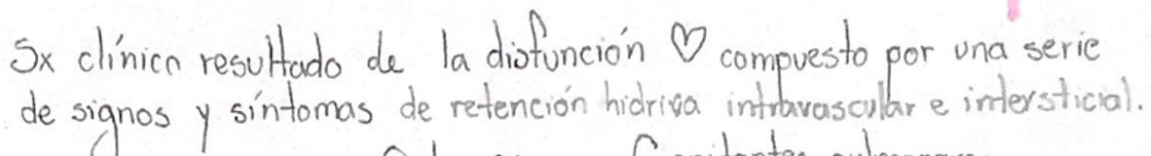 Sx clínico resultado de la disfunción ♡ compuesto por una serie
de signos y síntomas de retención hídrica intravascular e intersticial.